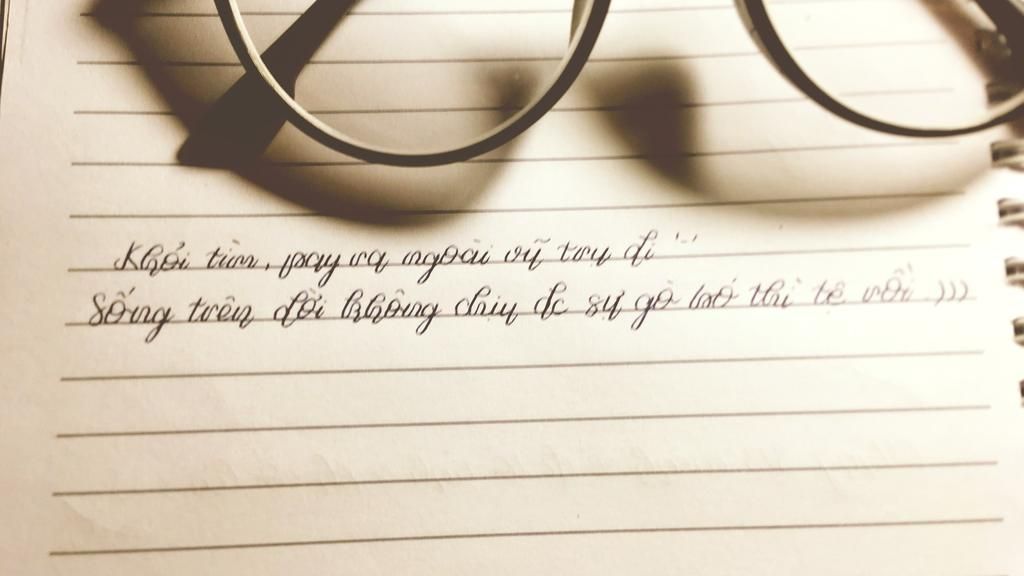 Khỏi tìm, pay ra ngoài vũ trụ đi '-'
Sống trên đời không chịu đc sự gò bó thì tê rồi )))